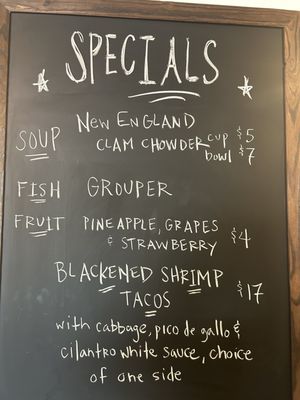 SPECIALS
SOUP NEW ENGLAND
CLAM CHOWDER cup $5
bowl $7
FISH GROUPER
FRUIT PINEAPPLE, GRAPES
& STRAWBERRY $4
BLACKENED SHRIMP
TACOS $17
with cabbage, pico de gallo &
cilantro white sauce, choice
of one side